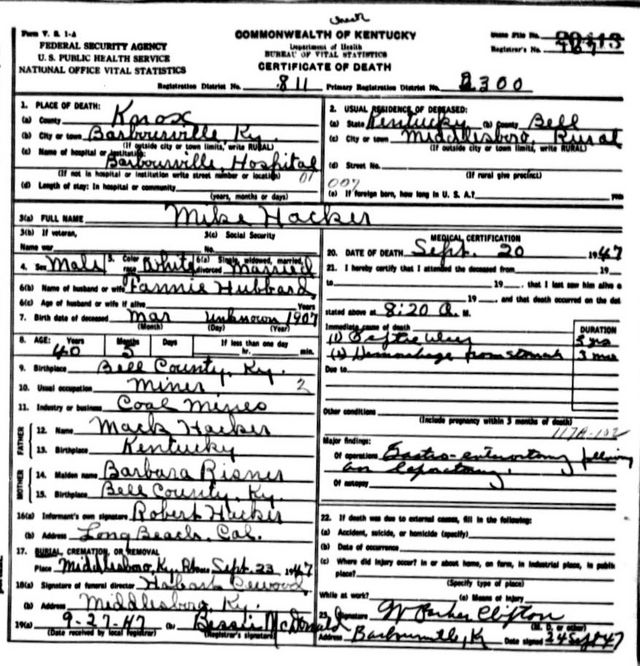 Form V. S. 1-A
COMMONWEALTH OF KENTUCKY
FEDERAL SECURITY AGENCY
Department of Health
Registrar's No.
U. S. PUBLIC HEALTH SERVICE
BUREAU OF VITAL STATISTICS
NATIONAL OFFICE VITAL STATISTICS
CERTIFICATE OF DEATH
Registration District No. 811 Primary Registration District No. 2300
1. PLACE OF DEATH:
(a) County Knox
(b) City or town Barbourville, Ky.
(If outside city or town limits, write RURAL)
(c) Name of hospital or institution:
Barbourville, Hospital
(If not in hospital or institution write street number or location)
(d) Length of stay: In hospital or community
(years, months or days)
2. USUAL RESIDENCE OF DECEASED:
(a) State Kentucky (b) County Bell
(c) City or town Middlesboro, Rural
(If outside city or town limits, write RURAL)
(d) Street No.
(If rural give precinct)
(e) If foreign born, how long in U. S. A.?
3(a) FULL NAME Mike Hacker
3(b) If veteran,
Name war
3(c) Social Security
No.
4. Sex Male 5. Color race White 6(a) Single, widowed, married, divorced Married
6(b) Name of husband or wife Fannie Hubbard
6(c) Age of husband or wife if alive Years
7. Birth date of deceased Mar unknown 1907
(Month) (Day) (Year)
8. AGE: Years Months Days If less than one day
40 hr. min.
9. Birthplace Bell County, Ky.
10. Usual occupation Miner 2
11. Industry or business Coal Mines
FATHER
12. Name Mack Hacker
13. Birthplace Kentucky
MOTHER
14. Maiden name Barbara Risner
15. Birthplace Bell County, Ky.
16(a) Informant's own signature Robert Hacker
(b) Address Long Beach, Cal.
17. BURIAL, CREMATION, OR REMOVAL
Place Middlesboro, Ky. Date Sept. 23 1947
18(a) Signature of funeral director
(b) Address Middlesboro, Ky.
19(a) 9-27-47 (b) Bessie McDonald
(Date received by local registrar) (Registrar's signature)
MEDICAL CERTIFICATION
20. DATE OF DEATH Sept. 20 1947
21. I hereby certify that I attended the deceased from 19
to 19 , that I last saw him alive o
19 , and that death occurred on the dat
stated above at 8:20 A. M.
Immediate cause of death
DURATION
(1) Peptic Ulcer
(2) Hemorrhage from stomach 3 mos
Due to
Other conditions
(Include pregnancy within 3 months of death)
Major findings:
Of operations Gastro-enterostomy following
Of autopsy
22. If death was due to external causes, fill in the following:
(a) Accident, suicide, or homicide (specify)
(b) Date of occurrence
(c) Where did injury occur? In or about home, on farm, in industrial place, in public
place?
(Specify type of place)
While at work? (e) Means of injury
23. Signature W Parker Clifton
(M. D. or other)
Address Barbourville, K Date signed 24 Sept 47